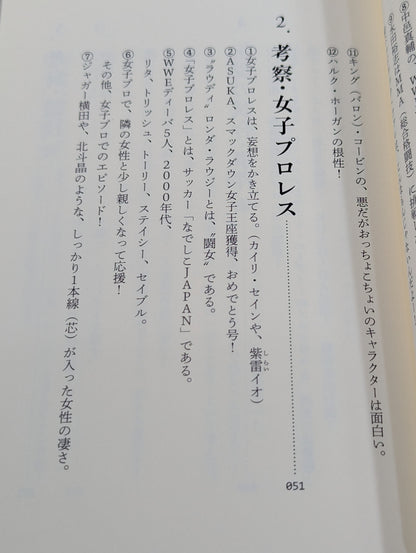 ⑪キング(バロン)・コービンの、悪だがおっちょこちょいのキャラクターは面白い。
⑫ハルク・ホーガンの根性!
2. 考察・女子プロレス 051
①女子プロレスは、妄想をかき立てる。(カイリ・セインや、紫雷イオ)
しらい
②ASUKA、スマックダウン女子王座獲得、おめでとう号!
③“ラウディ”ロンダ・ラウジーとは、“闘女”である。
④「女子プロレス」とは、サッカー「なでしこJAPAN」である。
⑤WWEディーバ5人、2000年代、
リタ、トリッシュ、トーリー、ステイシー、セイブル。
⑥女子プロで、隣の女性と少し親しくなって応援!
その他、女子プロでのエピソード!
⑦ジャガー横田や、北斗晶のような、しっかり1本線(芯)が入った女性の凄さ。